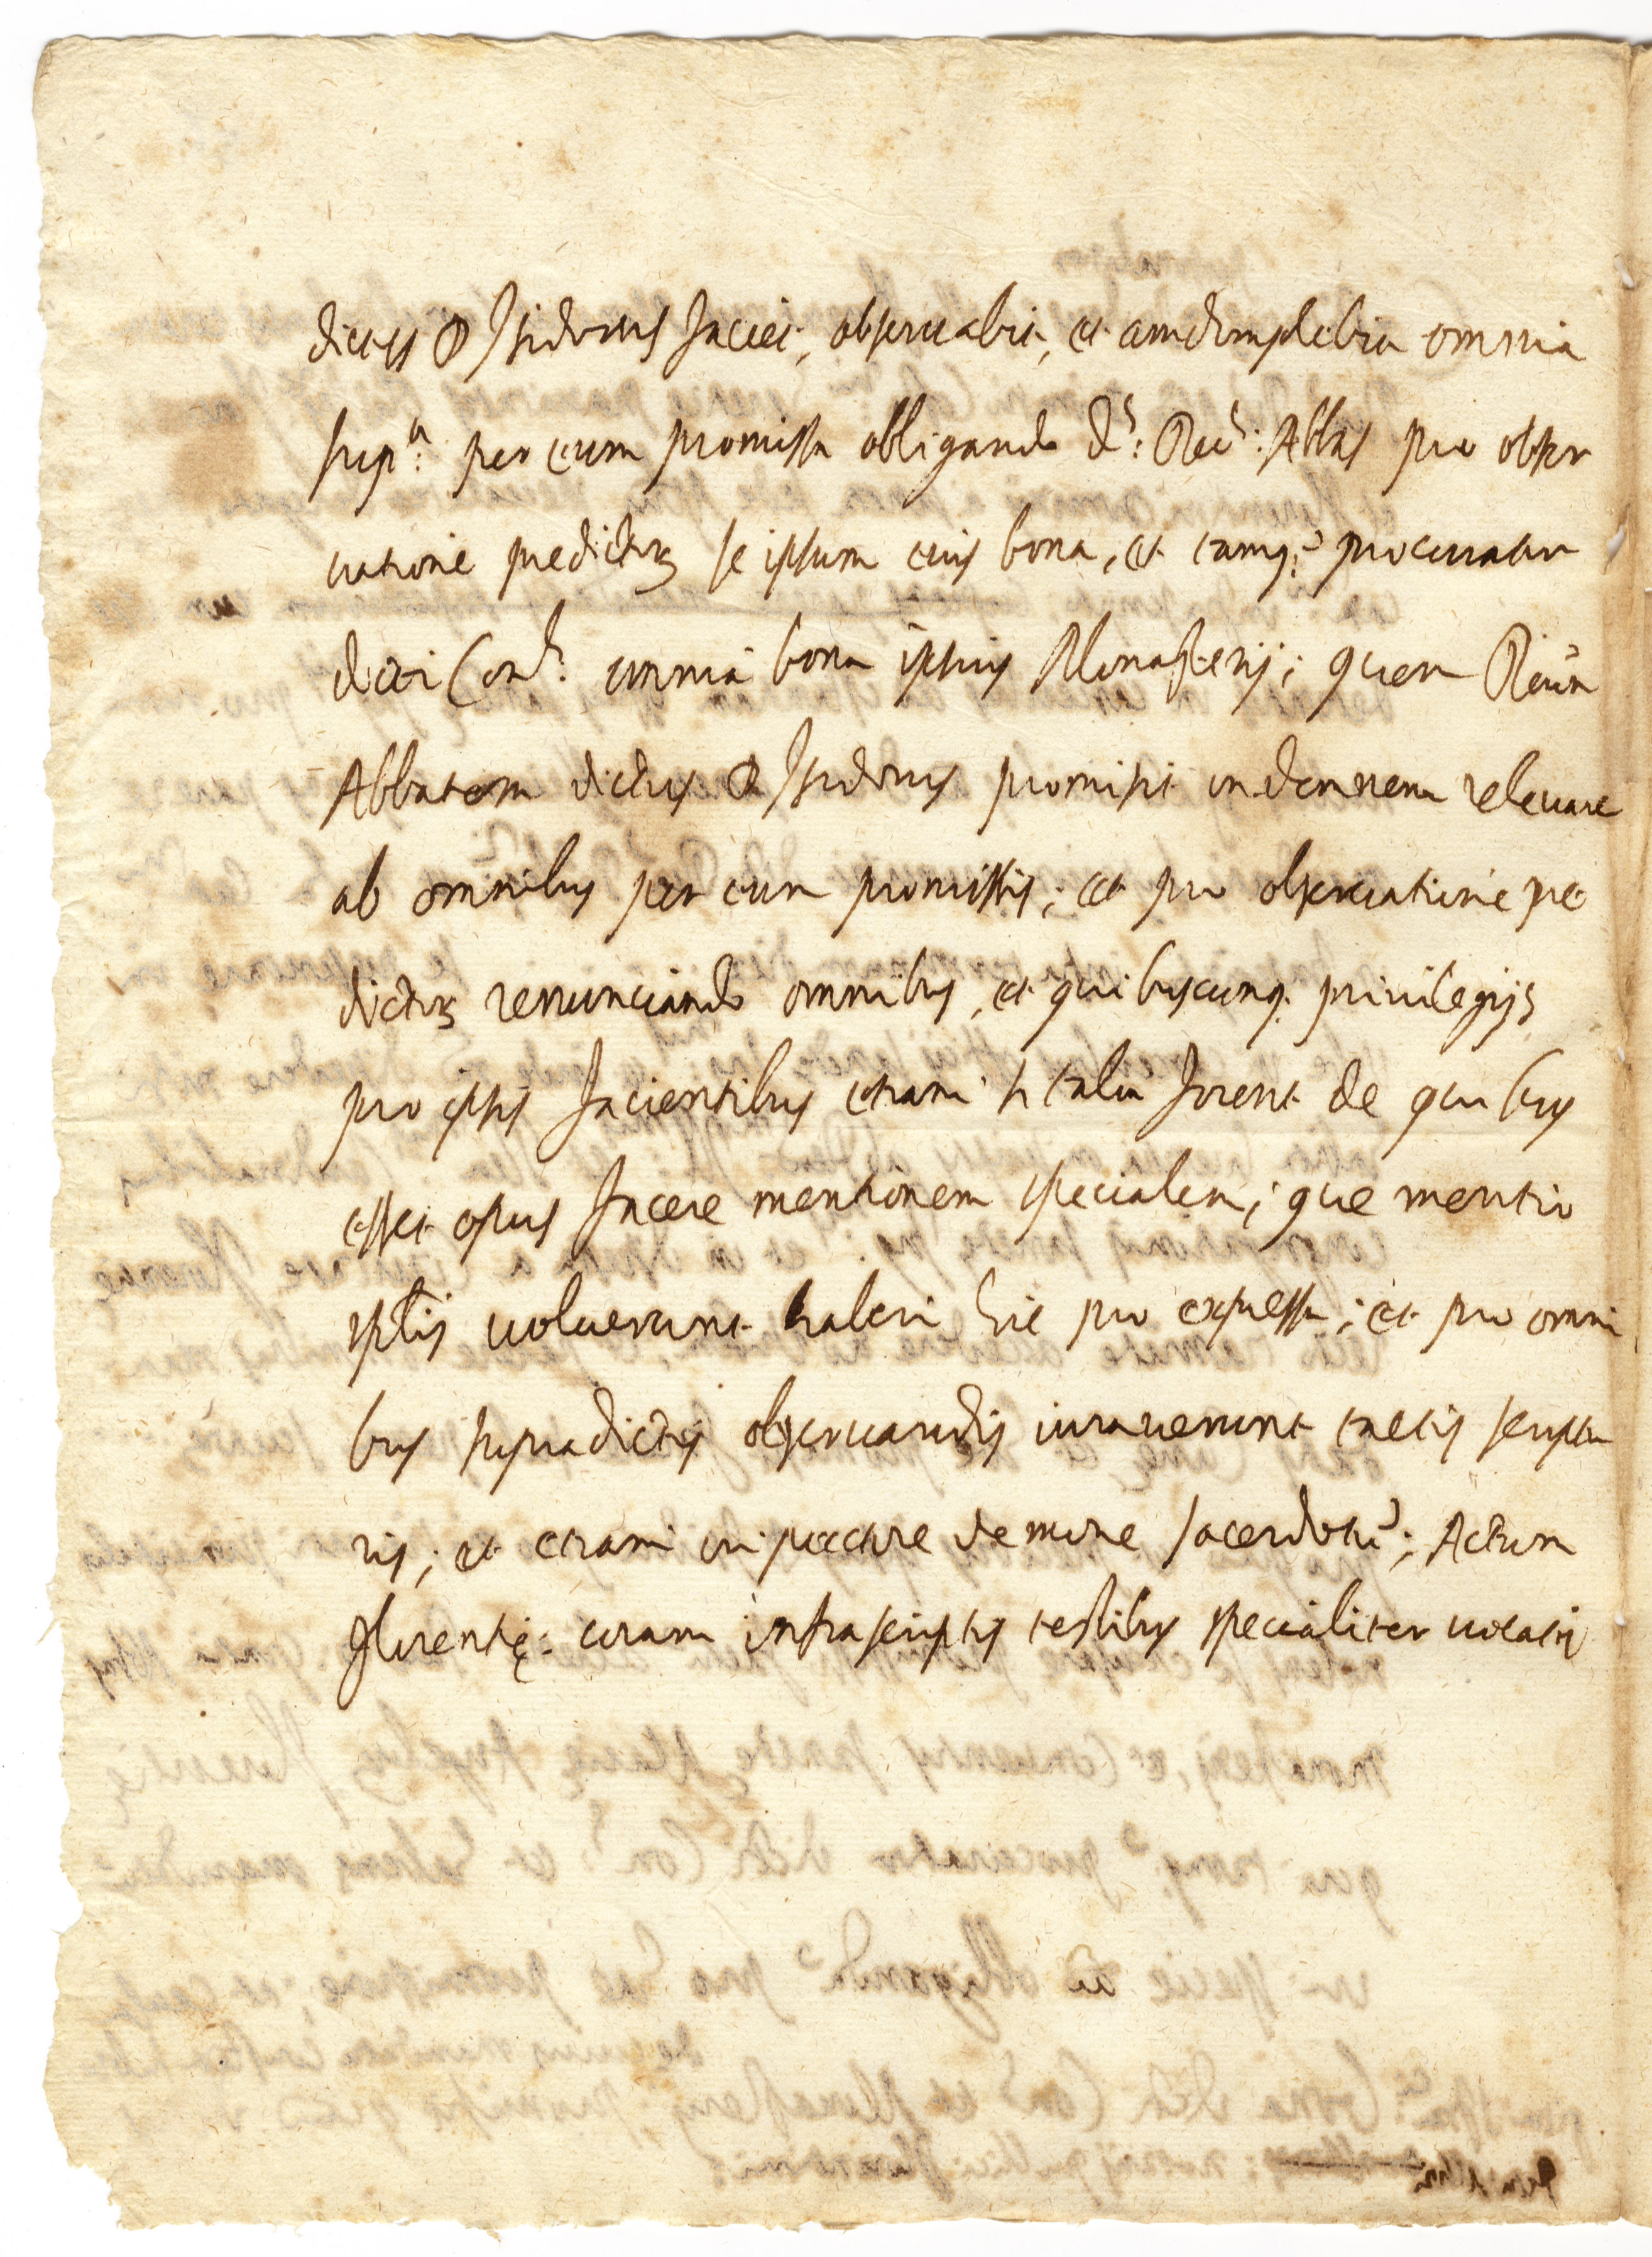 dictus D Isidorus faciet, obseruabit, et adimplebit omnia
sup.ª per eum promissa obligando d.s: Reu.s: Abbas pro obser
uatione predictor se ipsum eius bona, et tamq. procurator
dicti Con.s: omnia bona ipsius Monasterij; quem Reum
Abbatem dictus D Isidorus promisit indemnem releuare
ab omnibus per eum promissis; et pro obseruatione pre
dictor renunciando omnibus, et quibuscunq. priuilegijs
pro ipsis facientibus etiam si talia forent de quibus
esset opus facere mentionem specialem; que mentio
ipsis uoluerunt haberi hic pro expressa; et pro omni
bus supradictis obseruandis iurauerunt tactis scriptu
ris; et etiam in pectore de more sacerdotu; Actum
florentię: coram infrascriptis testibus specialiter uocatis